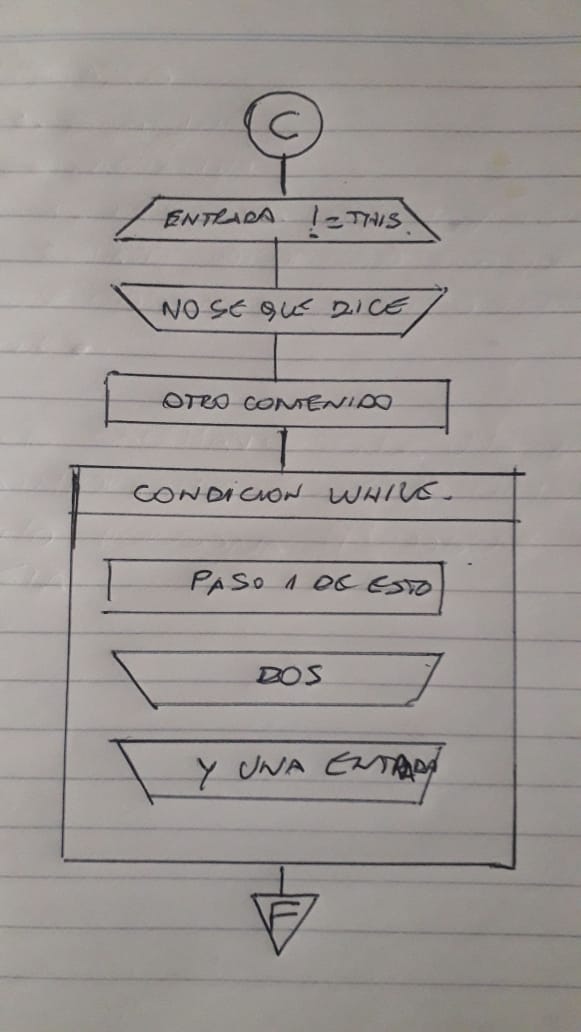 C
ENTRADA != THIS.
NO SE QUE DICE
OTRO CONTENIDO
CONDICION WHILE.
PASO 1 DE ESTO
DOS
Y UNA ENTRADA
F